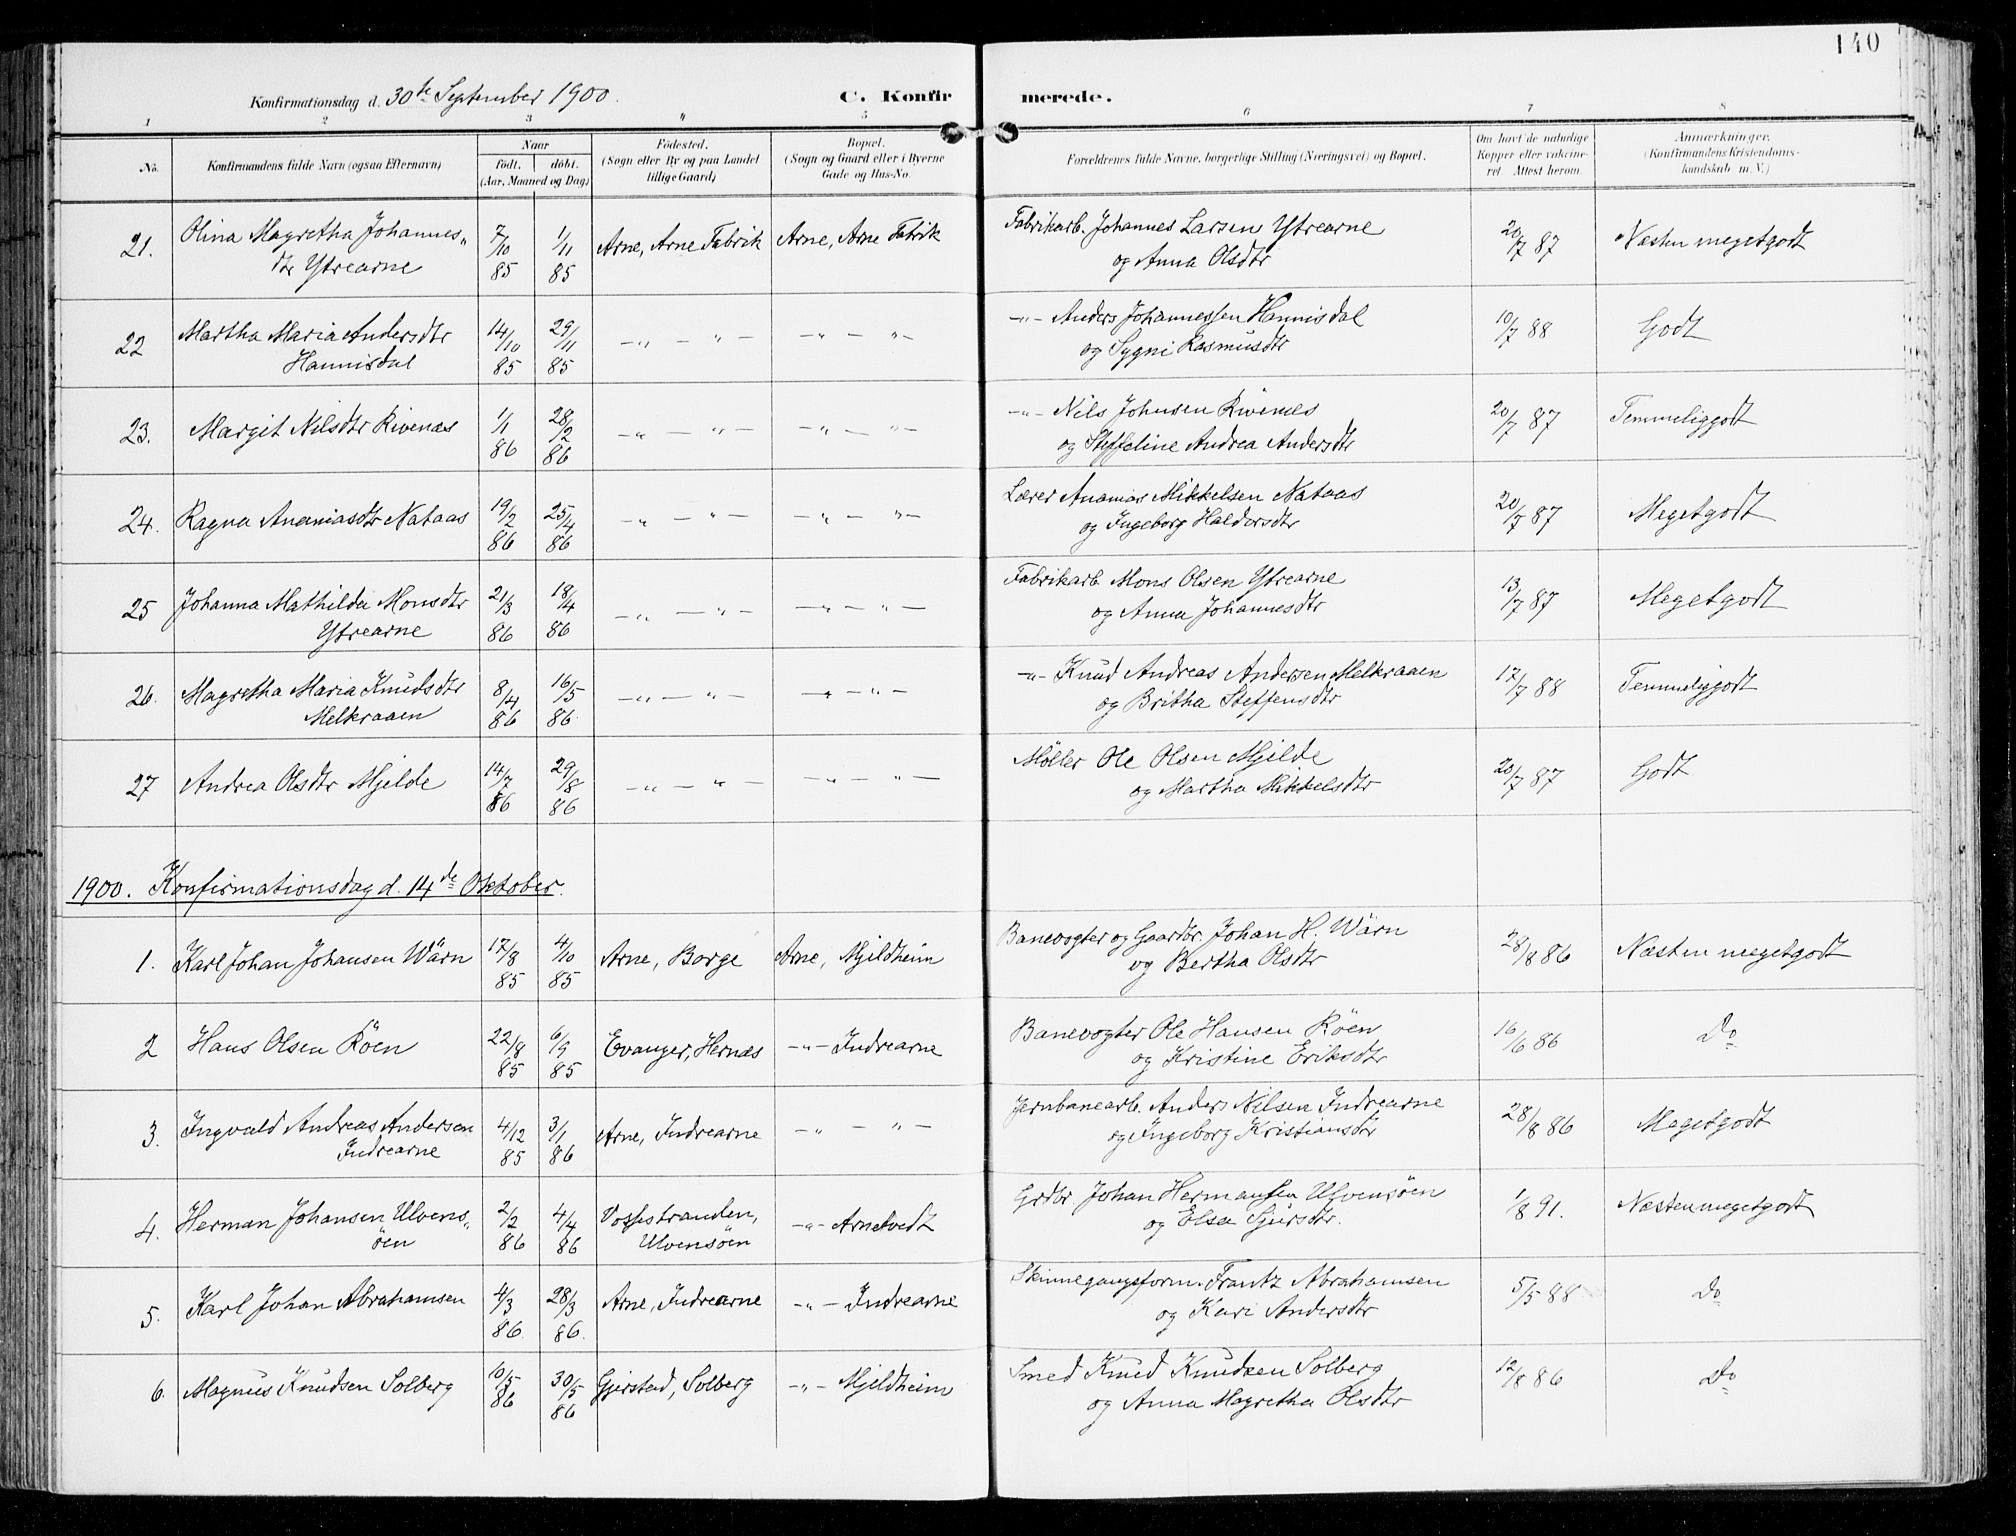 140
Konfirmationsdag d. 30te September 1900.
C. Konfir merede.
1 2 3 4 5 6 7 8
No.
Konfirmandens fulde Navn (ogsaa Efternavn)
Naar
født. døbt.
(Aar, Maaned og Dag)
Fødested.
(Sogn eller By og paa Landet
tillige Gaard)
Bopæl.
(Sogn og Gaard eller i Byerne
Gade og Hus-No.
Forældrenes fulde Navne, borgerlige Stilling (Næringsvei) og Bopæl.
Om havt de naturlige
Kopper eller vakcine-
ret Attest herom.
Anmærkninger.
(Konfirmandens Kristendoms-
kundskab m. V.)
21. Olina Magretha Johannes- 7/10 85 1/11 85 Arne, Arne Fabrik Arne, Arne Fabrik Fabrikarb. Johannes Larsen Ytrearne 20/7 87 Næsten megetgodt
dtr Ytrearne og Anna Olsdtr
22 Martha Maria Andersdtr 14/10 85 29/11 85 —"— "— —"— "— —"— Anders Johannessen Hannisdal 10/7 88 Godt
Hannisdal og Sygni Rasmusdtr
23. Margit Nilsdtr Rivenæs 1/1 86 28/2 86 —"— "— —"— "— —"— Nils Johnsen Rivenes 20/7 87 Temmeliggodt
og Steffeline Andrea Andersdtr
24. Ragna Ananiasdtr Nataas 19/2 86 25/4 86 —"— "— —"— "— Lærer Ananias Mikkelsen Nataas 20/7 87 Megetgodt
og Ingeborg Haldersdtr
25 Johanna Mathilde Monsdtr 21/3 86 18/4 86 —"— "— —"— "— Fabrikarb Mons Olsen Ytrearne 13/7 87 Megetgodt
Ytrearne og Anna Johannesdtr
26. Magretha Maria Knudsdtr 8/4 86 16/5 86 —"— "— —"— "— —"— Knud Andreas Andersen Melkraaen 17/7 88 Temmeliggodt
Melkraaen og Britha Steffensdtr
27 Andrea Olsdtr Mjelde 14/7 86 29/8 86 —"— "— —"— "— Møller Ole Olsen Mjelde 20/7 87 Godt
og Martha Mikkelsdtr
1900. Konfirmationsdag d. 14de Oktober.
1. Karl Johan Johansen Wärn 17/8 85 4/10 85 Arne, Borge Arne, Mjeldheim Banevogter og Gaardbr. Johan H. Wärn 28/8 86 Næsten megetgodt
og Bertha Olsdtr
2 Hans Olsen Röen 22/8 85 6/9 85 Evanger, Hernæs —"— Indrearne Banevogter Ole Hansen Röen 16/6 86 Do
og Kristine Eriksdtr
3. Ingvald Andreas Andersen 4/12 85 3/1 86 Arne, Indrearne —"— "— Jernbanearb. Anders Nilsen Indrearne 28/8 86 Megetgodt
Indrearne og Ingeborg Kristiansdtr
4. Herman Johansen Ulvens- 2/2 86 4/4 86 Vossestranden, —"— Arnetvedt Grdbr Johan Hermansen Ulvensöen 1/8 91. Næsten megetgodt
öen Ulvensöen og Elsa Sjursdtr.
5. Karl Johan Abrahamsen 4/3 86. 28/3 86. Arne, Indrearne —"— Indrearne Skinnegangsform. Frantz Abrahamsen 5/5 88 Do
og Kari Andersdtr
6. Magnus Knudsen Solberg 10/5 86 30/5 86 Gjerstad, Solberg —"— Mjeldheim Smed Knud Knudsen Solberg 12/8 86 Do
og Anna Magretha Olsdtr